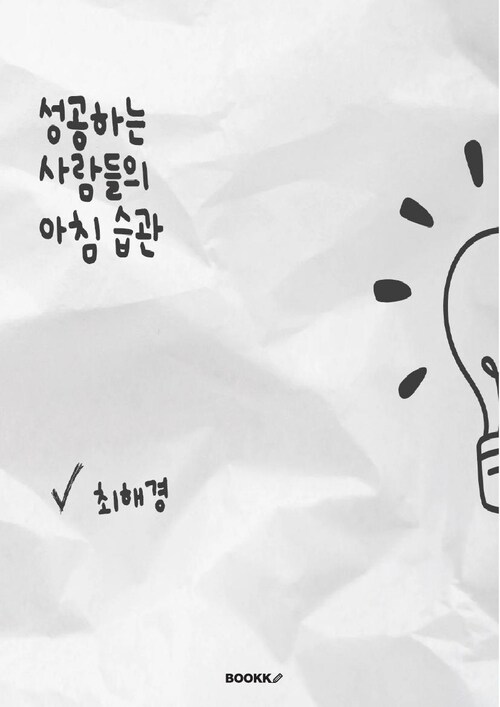 성공하는
사람들의
아침 습관
최해경
BOOKK